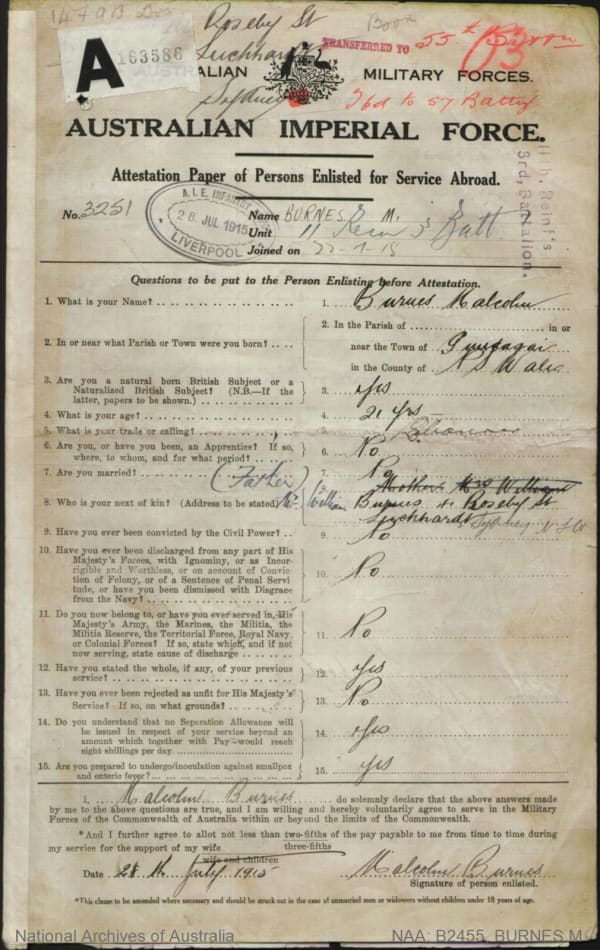 Roseby St
Leichhardt
Sydney
A
163586
TRANSFERRED TO 55th
AUSTRALIAN MILITARY FORCES.
Tfd to 57 Batty
AUSTRALIAN IMPERIAL FORCE.
Attestation Paper of Persons Enlisted for Service Abroad.
11th. Reinf's
3rd, Battalion.
A.I.F. INFANTRY
28 JUL 1915
LIVERPOOL
No. 3251
Name BURNES M.
Unit 11 Rein 3 Batt
Joined on
Questions to be put to the Person Enlisting before Attestation.
1. What is your Name? 1. Burnes Malcolm
2. In or near what Parish or Town were you born? 2. In the Parish of in or
near the Town of Gundagai
in the County of N S Wales
3. Are you a natural born British Subject or a
Naturalized British Subject? (N.B.—If the
latter, papers to be shown.) 3. Yes
4. What is your age? 4. 21 yrs
5. What is your trade or calling? 5.
6. Are you, or have you been, an Apprentice? If so,
where, to whom, and for what period? 6. No
7. Are you married? 7. No
(Father) 8. Mother Mrs William
8. Who is your next of kin? (Address to be stated) Mr William Burnes Roseby St
Leichhardt Sydney N.S.W
9. Have you ever been convicted by the Civil Power? 9. No
10. Have you ever been discharged from any part of His
Majesty's Forces, with Ignominy, or as Incor-
rigible and Worthless, or on account of Convic-
tion of Felony, or of a Sentence of Penal Servi
tude, or have you been Dismissed with Disgrace
from the Navy? 10. No
11. Do you now belong to, or have you ever served in, His
Majesty's Army, the Marines, the Militia, the
Militia Reserve, the Territorial Force, Royal Navy
or Colonial Forces? If so, state which, and if not
now serving, state cause of discharge 11. No
12. Have you stated the whole, if any, of your previous
service? 12. Yes
13. Have you ever been rejected as unfit for His Majesty's
Service? If so, on what grounds? 13. No
14. Do you understand that no Separation Allowance will
be issued in respect of your service beyond an
amount which together with Pay would reach
eight shillings per day. 14. Yes
15. Are you prepared to undergo inoculation against smallpox
and enteric fever? 15. Yes
I, Malcolm Burnes do solemnly declare that the above answers made
by me to the above questions are true, and I am willing and hereby voluntarily agree to serve in the Military
Forces of the Commonwealth of Australia within or beyond the limits of the Commonwealth.
*And I further agree to allot not less than two-fifths of the pay payable to me from time to time during
three-fifths
my service for the support of my wife
wife and children
Date 28th July 1915 Malcolm Burnes
Signature of person enlisted.
*This clause to be amended where necessary and should be struck out in the case of unmarried men or widowers without children under 18 years of age.
National Archives of Australia NAA: B2455, BURNES M